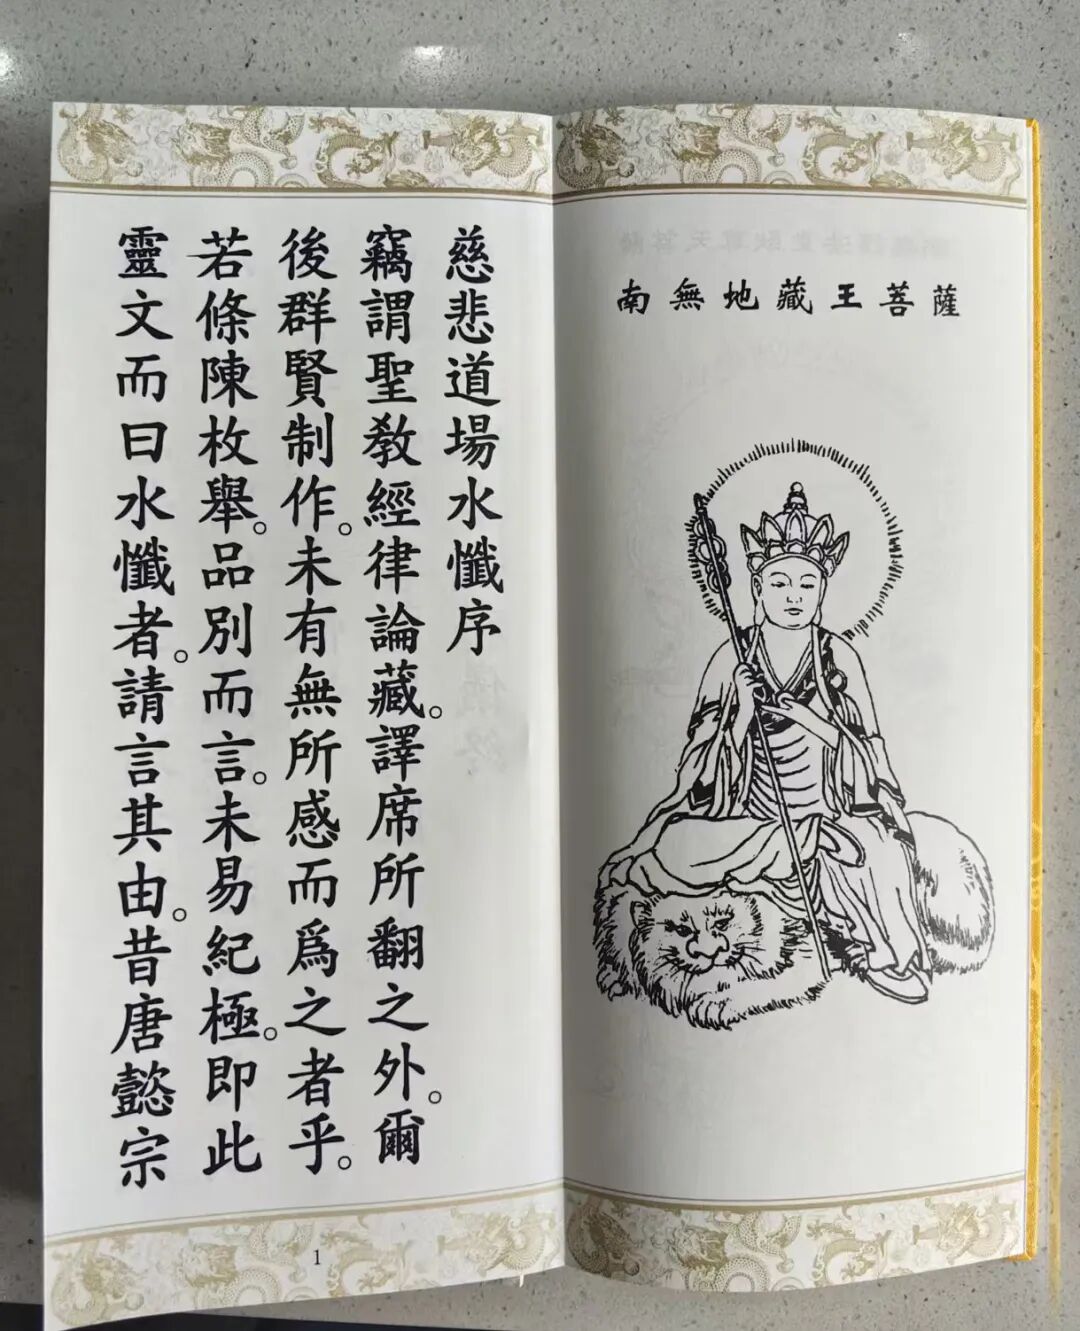 南無地藏王菩薩
慈悲道場水懺序
竊謂聖教經律論藏。譯席所翻之外。爾
後群賢制作。未有無所感而爲之者乎。
若條陳枚舉。品別而言。未易紀極。即此
靈文而曰水懺者。請言其由。昔唐懿宗
1